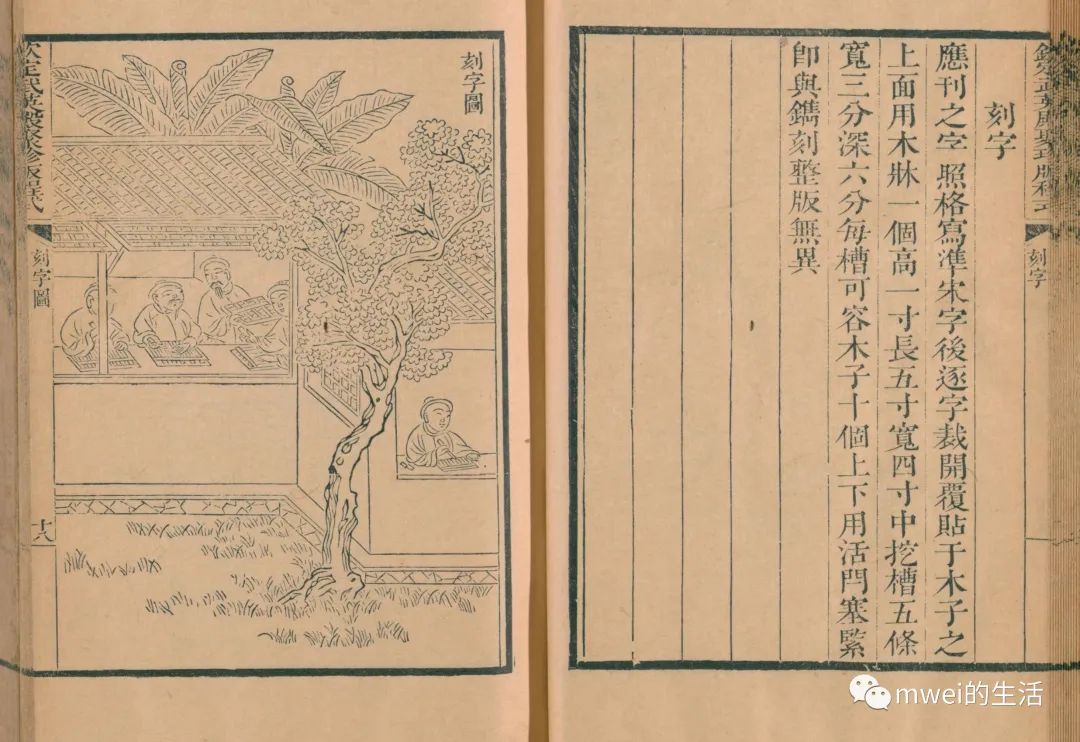 欽定武英殿聚珍版程式
刻字
刻字
應刊之字照格寫準宋字後逐字裁開覆貼于木子之
上面用木牀一個高一寸長五寸寬四寸中挖槽五條
寬三分深六分每槽可容木子十個上下用活閂塞緊
卽與鐫刻整版無異
刻字圖
欽定武英殿聚珍版程式
刻字圖
十八
mwei的生活